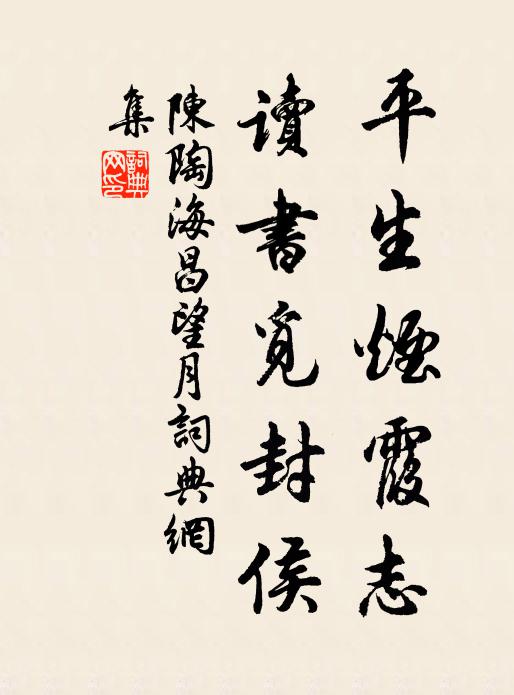 平生煙霞志
讀書覓封侯
陳陶海昌望月詞典網
集
詞典網印